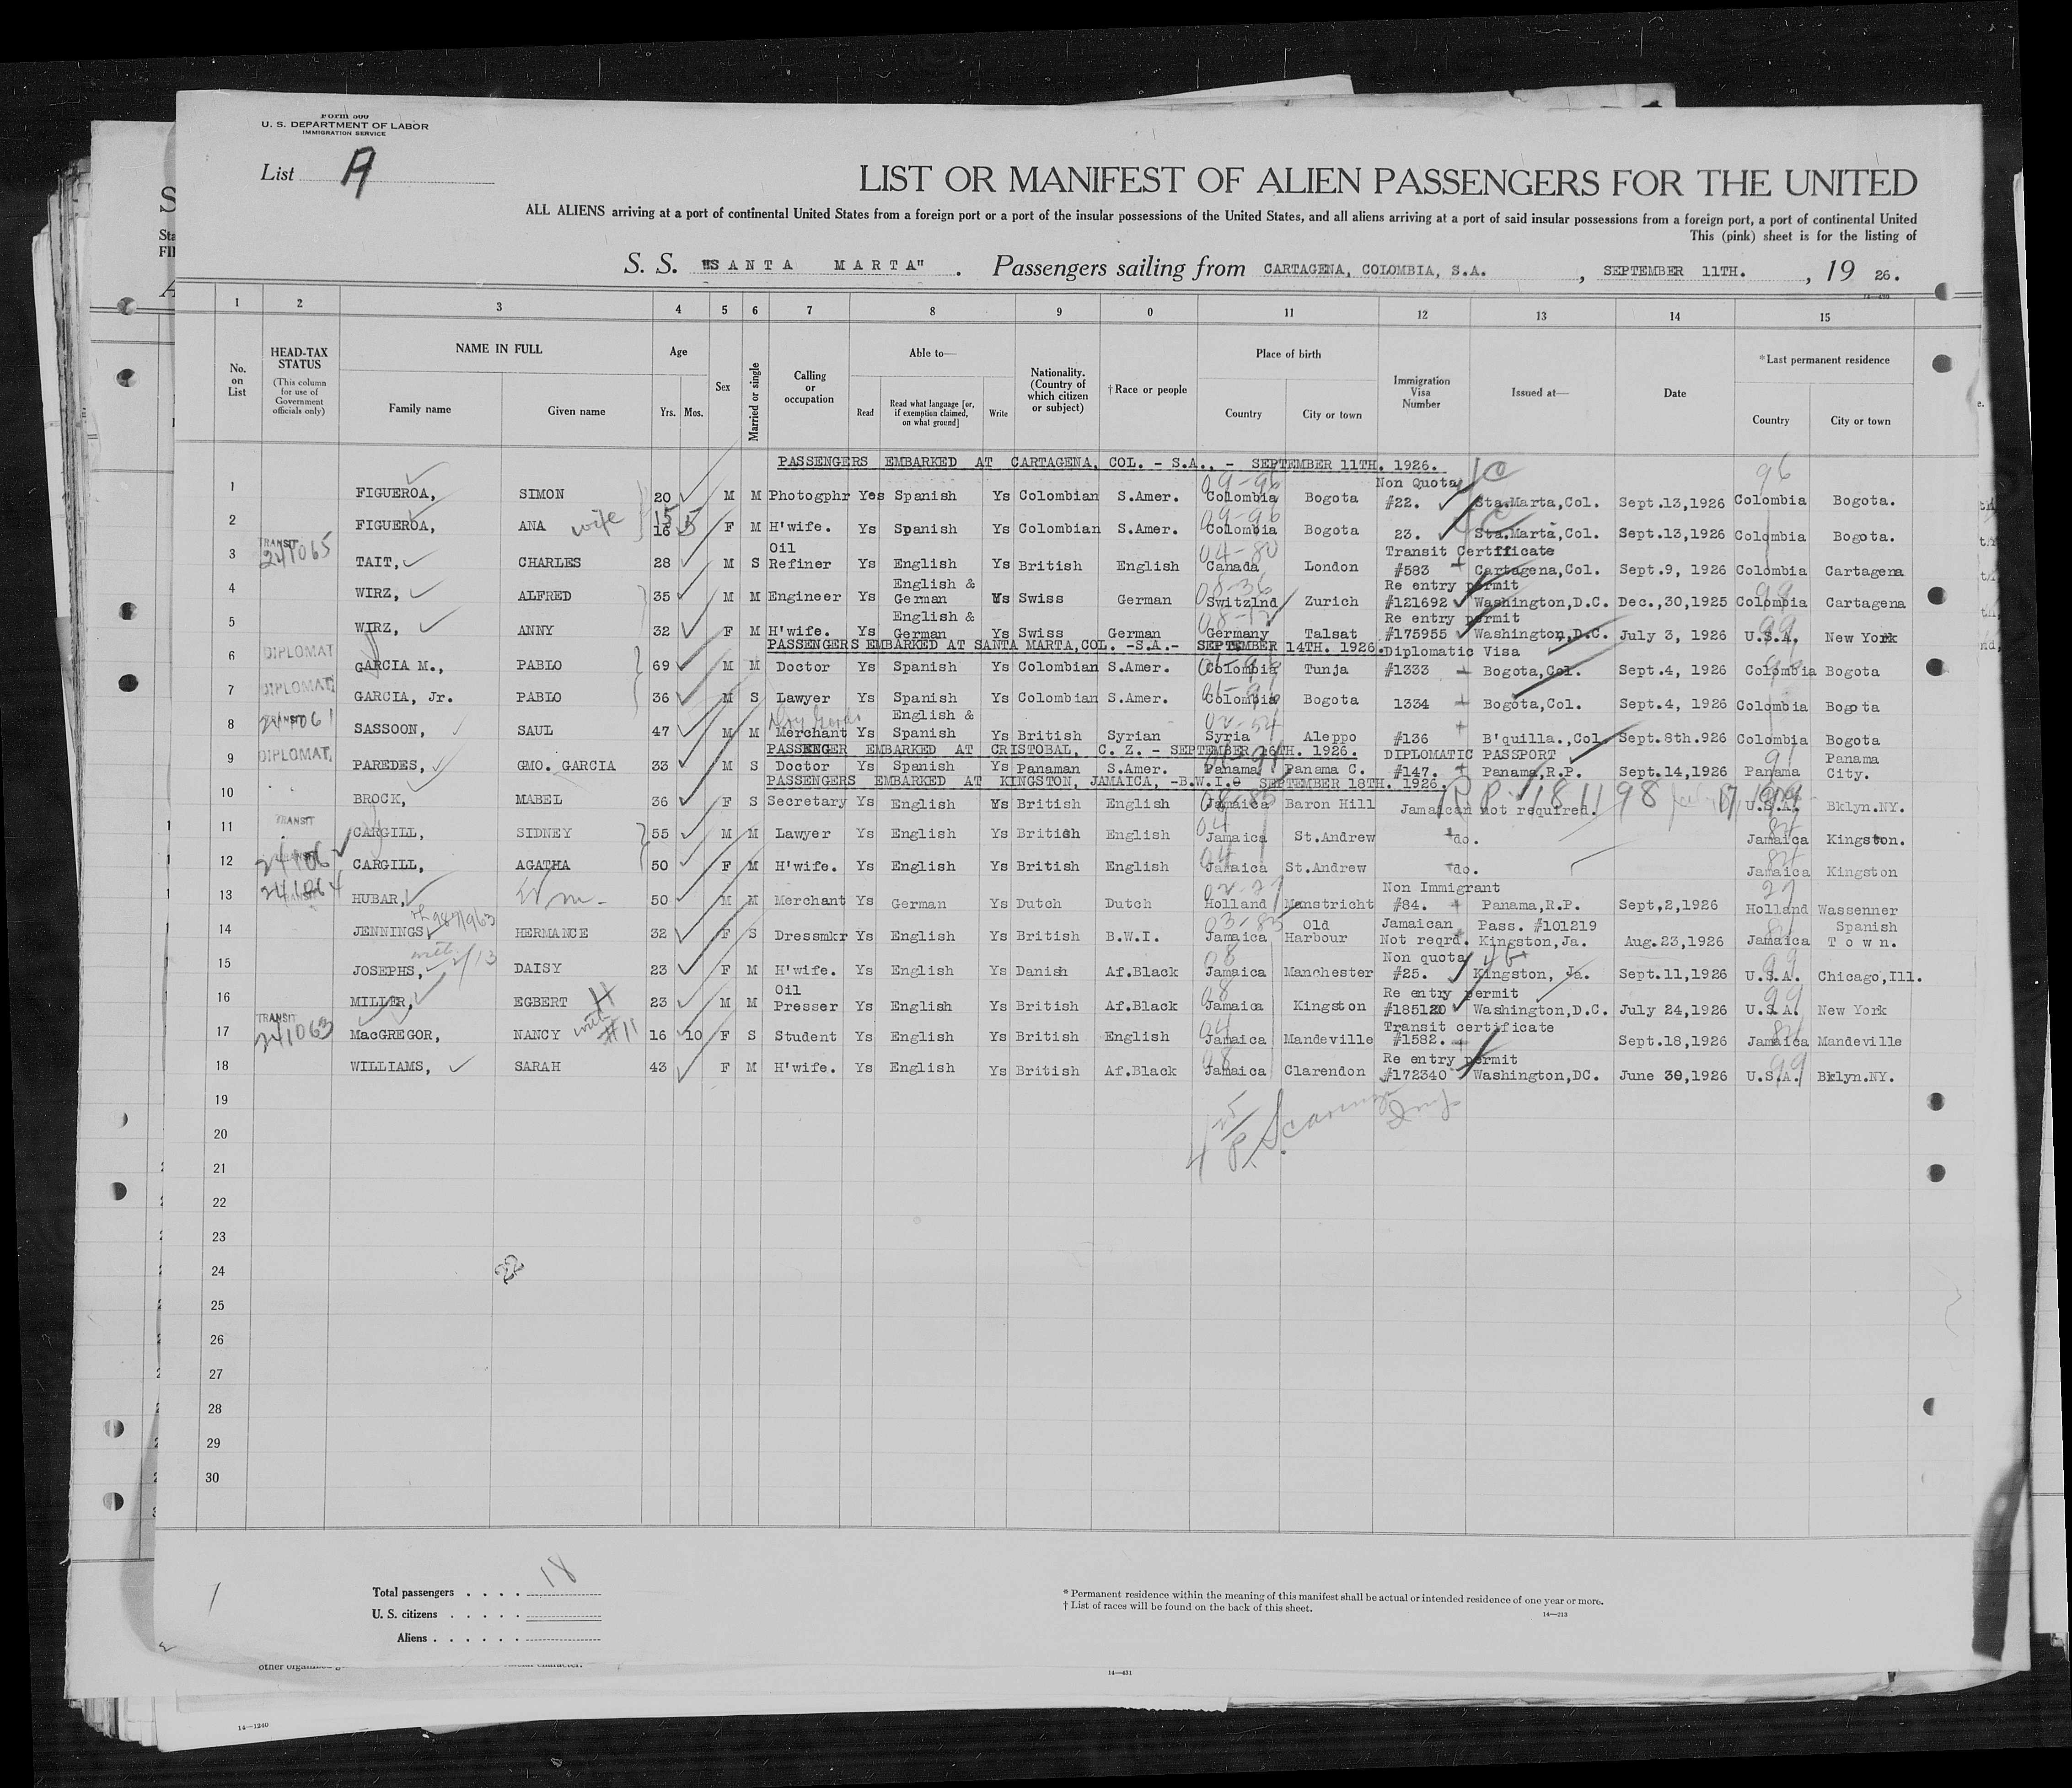 Form 500
U. S. DEPARTMENT OF LABOR
IMMIGRATION SERVICE
List A
LIST OR MANIFEST OF ALIEN PASSENGERS FOR THE UNITED
ALL ALIENS arriving at a port of continental United States from a foreign port or a port of the insular possessions of the United States, and all aliens arriving at a port of said insular possessions from a foreign port, a port of continental United
This (pink) sheet is for the listing of
S. S. "SANTA MARTA". Passengers sailing from CARTAGENA, COLOMBIA, S.A., SEPTEMBER 11TH., 19 26.
1 2 3 4 5 6 7 8 9 0 11 12 13 14 15
No. on List
HEAD-TAX STATUS (This column for use of Government officials only)
NAME IN FULL Family name Given name
Age Yrs. Mos.
Sex
Married or single
Calling or occupation
Able to— Read Read what language [or, if exemption claimed, on what ground] Write
Nationality. (Country of which citizen or subject)
†Race or people
Place of birth Country City or town
Immigration Visa Number
Issued at—
Date
*Last permanent residence Country City or town
PASSENGERS EMBARKED AT CARTAGENA, COL. - S.A., - SEPTEMBER 11TH. 1926.
Non Quota
1 FIGUEROA, SIMON 20 M M Photogphr Yes Spanish Ys Colombian S.Amer. Colombia Bogota #22. Sta.Marta,Col. Sept.13,1926 Colombia Bogota.
2 FIGUEROA, ANA wife 16 F M H'wife. Ys Spanish Ys Colombian S.Amer. Colombia Bogota 23. Sta.Marta,Col. Sept.13,1926 Colombia Bogota.
TRANSIT 241065 Oil Transit Certficate
3 TAIT, CHARLES 28 M S Refiner Ys English Ys British English Canada London #583 Cartagena,Col. Sept.9, 1926 Colombia Cartagena
English & Re entry permit
4 WIRZ, ALFRED 35 M M Engineer Ys German Ys Swiss German Switzlnd Zurich #121692 Washington,D.C. Dec.,30,1925 Colombia Cartagena
English & Re entry permit
5 WIRZ, ANNY 32 F M H'wife. Ys German Ys Swiss German Germany Talsat #175955 Washington,D.C. July 3, 1926 U.S.A. New York
PASSENGERS EMBARKED AT SANTA MARTA,COL. -S.A.- SEPTEMBER 14TH. 1926. Diplomatic Visa
6 DIPLOMAT GARCIA M., PABLO 69 M M Doctor Ys Spanish Ys Colombian S.Amer. Colombia Tunja #1333 Bogota,Col. Sept.4, 1926 Colombia Bogota
7 DIPLOMAT GARCIA, Jr. PABLO 36 M S Lawyer Ys Spanish Ys Colombian S.Amer. Colombia Bogota 1334 Bogota,Col. Sept.4, 1926 Colombia Bogota
TRANSIT 241061 Dry Goods English &
8 SASSOON, SAUL 47 M M Merchant Ys Spanish Ys British Syrian Syria Aleppo #136 B'quilla.,Col. Sept.8th.926 Colombia Bogota
PASSENGER EMBARKED AT CRISTOBAL, C. Z. - SEPTEMBER 16TH. 1926. DIPLOMATIC PASSPORT
9 DIPLOMAT. PAREDES, GMO. GARCIA 33 M S Doctor Ys Spanish Ys Panaman S.Amer. Panama Panama C. #147. Panama,R.P. Sept.14,1926 Panama Panama City.
PASSENGERS EMBARKED AT KINGSTON, JAMAICA, -B.W.I. SEPTEMBER 18TH. 1926.
10 BROCK, MABEL 36 F S Secretary Ys English Ys British English Jamaica Baron Hill Jamaican not required. U.S.A. Bklyn.NY.
11 TRANSIT CARGILL, SIDNEY 55 M M Lawyer Ys English Ys British English Jamaica St.Andrew do. Jamaica Kingston.
12 241062 CARGILL, AGATHA 50 F M H'wife. Ys English Ys British English Jamaica St.Andrew do. Jamaica Kingston
Non Immigrant
13 241064 TRANSIT HUBAR, Wm. 50 M M Merchant Ys German Ys Dutch Dutch Holland Manstricht #84. Panama,R.P. Sept,2,1926 Holland Wassenner
Old Jamaican Pass. #101219 Spanish
14 JENNINGS, HERMANCE 32 F S Dressmkr Ys English Ys British B.W.I. Jamaica Harbour Not reqrd. Kingston,Ja. Aug.23,1926 Jamaica Town.
Non quota
15 JOSEPHS, DAISY 23 F M H'wife. Ys English Ys Danish Af.Black Jamaica Manchester #25. Kingston, Ja. Sept.11,1926 U.S.A. Chicago,Ill.
Oil Re entry permit
16 MILLER, EGBERT 23 M M Presser Ys English Ys British Af.Black Jamaica Kingston #185120 Washington,D.C. July 24,1926 U.S.A. New York
TRANSIT 241063 Transit certificate
17 MacGREGOR, NANCY with #11 16 10 F S Student Ys English Ys British English Jamaica Mandeville #1582. Sept.18,1926 Jamaica Mandeville
Re entry permit
18 WILLIAMS, SARAH 43 F M H'wife. Ys English Ys British Af.Black Jamaica Clarendon #172340 Washington,DC. June 30,1926 U.S.A. Bklyn.NY.
19
20
21
22
23
24
25
26
27
28
29
30
22
Total passengers . . . . 18
U. S. citizens . . . . .
Aliens . . . . . .
* Permanent residence within the meaning of this manifest shall be actual or intended residence of one year or more.
† List of races will be found on the back of this sheet.
14—213
14—431
14—1240